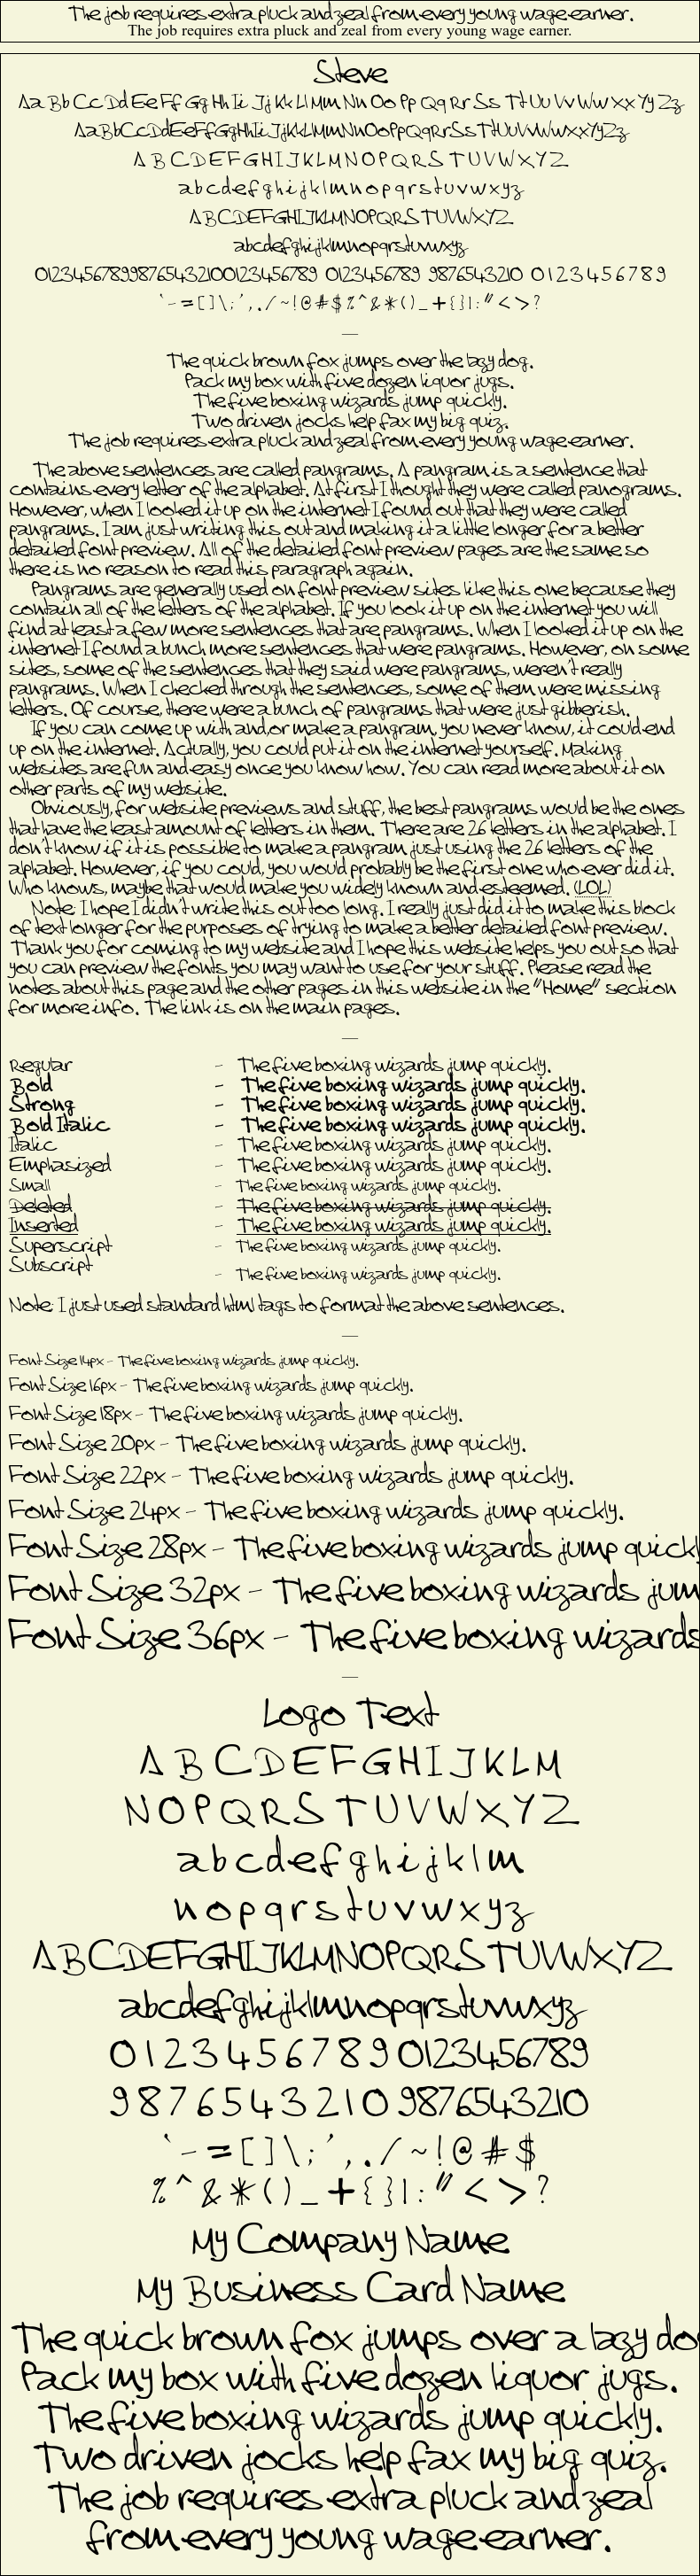 The job requires extra pluck and zeal from every young wage earner.
The job requires extra pluck and zeal from every young wage earner.
Steve
Aa Bb Cc Dd Ee Ff Gg Hh Ii Jj Kk Ll Mm Nn Oo Pp Qq Rr Ss Tt Uu Vv Ww Xx Yy Zz
AaBbCcDdEeFfGgHhIiJjKkLlMmNnOoPpQqRrSsTtUuVvWwXxYyZz
A B C D E F G H I J K L M N O P Q R S T U V W X Y Z
a b c d e f g h i j k l m n o p q r s t u v w x y z
ABCDEFGHIJKLMNOPQRSTUVWXYZ
abcdefghijklmnopqrstuvwxyz
012345678998765432100123456789 0123456789 9876543210 0 1 2 3 4 5 6 7 8 9
` - = [ ] \ ; ' , . / ~ ! @ # $ % ^ & * ( ) _ + { } | : " < > ?
—
The quick brown fox jumps over the lazy dog.
Pack my box with five dozen liquor jugs.
The five boxing wizards jump quickly.
Two driven jocks help fax my big quiz.
The job requires extra pluck and zeal from every young wage earner.
The above sentences are called pangrams. A pangram is a sentence that
contains every letter of the alphabet. At first I thought they were called panograms.
However, when I looked it up on the internet I found out that they were called
pangrams. I am just writing this out and making it a little longer for a better
detailed font preview. All of the detailed font preview pages are the same so
there is no reason to read this paragraph again.
Pangrams are generally used on font preview sites like this one because they
contain all of the letters of the alphabet. If you look it up on the internet you will
find at least a few more sentences that are pangrams. When I looked it up on the
internet I found a bunch more sentences that were pangrams. However, on some
sites, some of the sentences that they said were pangrams, weren't really
pangrams. When I checked through the sentences, some of them were missing
letters. Of course, there were a bunch of pangrams that were just gibberish.
If you can come up with and,or make a pangram, you never know, it could end
up on the internet. Actually, you could put it on the internet yourself. Making
websites are fun and easy once you know how. You can read more about it on
other parts of my website.
Obviously, for website previews and stuff, the best pangrams would be the ones
that have the least amount of letters in them. There are 26 letters in the alphabet. I
don't know if it is possible to make a pangram just using the 26 letters of the
alphabet. However, if you could, you would probably be the first one who ever did it.
Who knows, maybe that would make you widely known and esteemed. (LOL)
Note: I hope I didn't write this out too long. I really just did it to make this block
of text longer for the purposes of trying to make a better detailed font preview.
Thank you for coming to my website and I hope this website helps you out so that
you can preview the fonts you may want to use for your stuff. Please read the
notes about this page and the other pages in this website in the "Home" section
for more info. The link is on the main pages.
—
Regular - The five boxing wizards jump quickly.
Bold - The five boxing wizards jump quickly.
Strong - The five boxing wizards jump quickly.
Bold Italic - The five boxing wizards jump quickly.
Italic - The five boxing wizards jump quickly.
Emphasized - The five boxing wizards jump quickly.
Small - The five boxing wizards jump quickly.
Deleted - The five boxing wizards jump quickly.
Inserted - The five boxing wizards jump quickly.
Superscript - The five boxing wizards jump quickly.
Subscript - The five boxing wizards jump quickly.
Note: I just used standard html tags to format the above sentences.
—
Font Size 14px - The five boxing wizards jump quickly.
Font Size 16px - The five boxing wizards jump quickly.
Font Size 18px - The five boxing wizards jump quickly.
Font Size 20px - The five boxing wizards jump quickly.
Font Size 22px - The five boxing wizards jump quickly.
Font Size 24px - The five boxing wizards jump quickly.
Font Size 28px - The five boxing wizards jump quickl
Font Size 32px - The five boxing wizards jum
Font Size 36px - The five boxing wizards
—
Logo Text
A B C D E F G H I J K L M
N O P Q R S T U V W X Y Z
a b c d e f g h i j k l m
n o p q r s t u v w x y z
ABCDEFGHIJKLMNOPQRSTUVWXYZ
abcdefghijklmnopqrstuvwxyz
0 1 2 3 4 5 6 7 8 9 0123456789
9 8 7 6 5 4 3 2 1 0 9876543210
` - = [ ] \ ; ' , . / ~ ! @ # $
% ^ & * ( ) _ + { } | : " < > ?
My Company Name
My Business Card Name
The quick brown fox jumps over a lazy do
Pack my box with five dozen liquor jugs.
The five boxing wizards jump quickly.
Two driven jocks help fax my big quiz.
The job requires extra pluck and zeal
from every young wage earner.